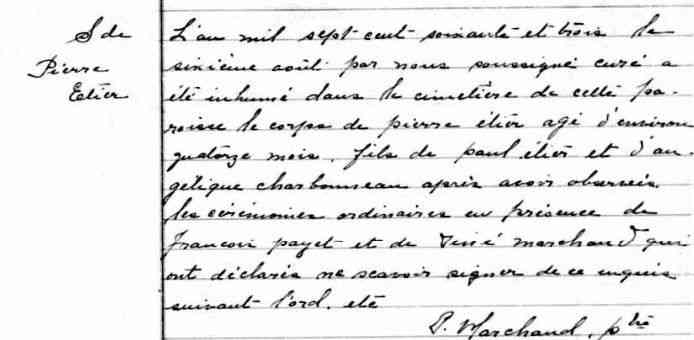 S de
Pierre
Etier
L'an mil sept cent soixante et trois le
sixième août par nous soussigné curé a
été inhumé dans le cimetière de cette pa-
roisse le corps de pierre étier agé d'environ
quatorze mois, fils de paul étier et d'an-
gélique charbonneau après avoir observées
les cérémonies ordinaires en présence de
francois payet et de René marchand qui
ont déclarés ne scavoir signer de ce enquis
suivant l'ord. etc
P. Marchand, ptre